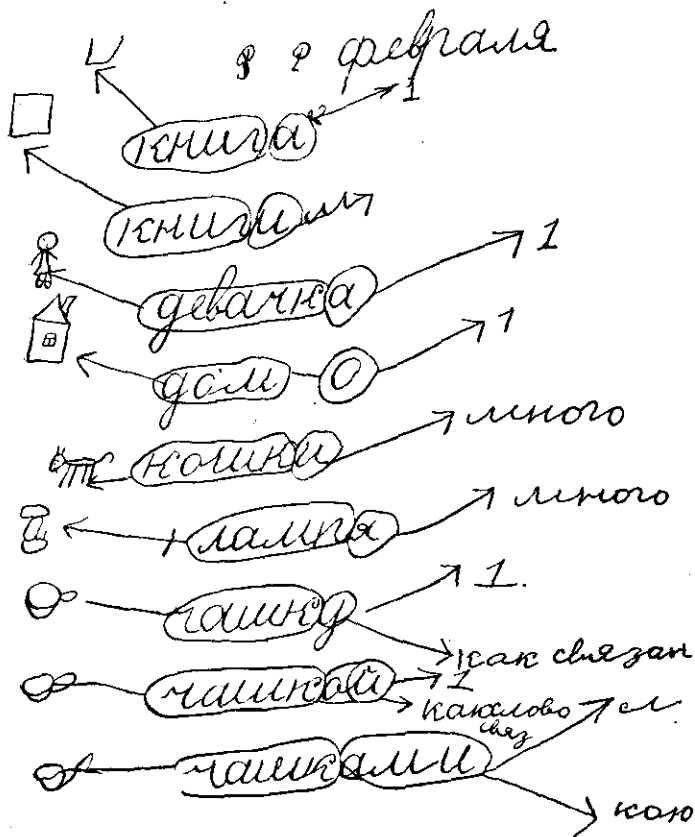 февраля
книга 1
книги
девачка 1
дом 0 1
кошки много
лампя много
чашка 1.
как связан
чашкой 1
как слово
связ
чашками м
каю